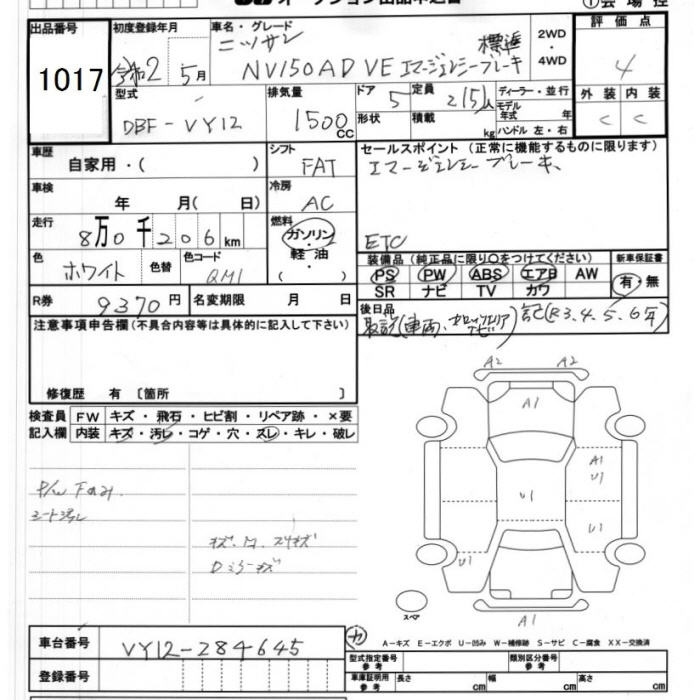 出品番号 初度登録年月 車名・グレード 評価点
1017 令和2 5月 ニッサン 標準 2WD・4WD 4
NV150AD VE エマージェンシーブレーキ
型式 DBF-VY12 排気量 1500cc ドア 5 定員 2/5人 ディーラー・並行 外装 内装
形状 積載 kg モデル年式 年 ハンドル 左・右 C C
車歴 自家用・( ) シフト FAT セールスポイント (正常に機能するものに限ります)
エマージェンシーブレーキ、
車検 年 月( 日) 冷房 AC
走行 8万0千206km 燃料 ガソリン・軽油・( ) ETC
色 ホワイト 色替 色コード QM1 装備品 (純正品に限り○をつけてください) 新車保証書
PS PW ABS エアB AW 有・無
SR ナビ TV カワ
R券 9370円 名変期限 月 日 後日品
取説(車両、 ナビ) 記(R3.4.5.6年)
注意事項申告欄(不具合内容等は具体的に記入して下さい)
修復歴 有 〔箇所 〕
検査員 FW キズ・飛石・ヒビ割・リペア跡・×要
記入欄 内装 キズ・汚レ・コゲ・穴・スレ・キレ・破レ
P/W Fのみ
シート汚レ
キズ、 スリキズ
Dミラーキズ
A2 A2
A1
A1
U1
U1
U1
U1
スペア
A1
カ
車台番号 VY12-284645
A-キズ E-エクボ U-凹み W-補修跡 S-サビ C-腐食 XX-交換済
登録番号
型式指定番号 参考 類別区分番号 参考
車庫証明用 参考 長さ cm 幅 cm 高さ cm